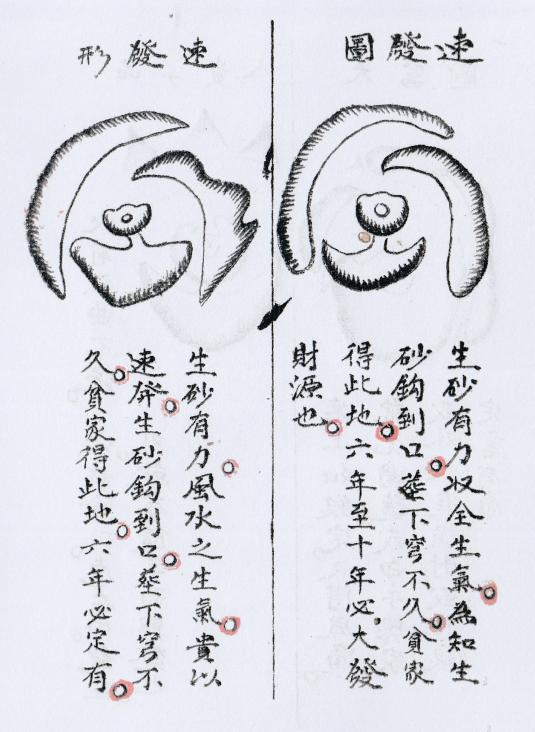 速發圖
生砂有力収全生氣為知生
砂鈎到口塟下穹不久貧家
得此地六年至十年必大發
財源也
速發形
生砂有力風水之生氣貴以
速發生砂鈎到口塟下穹不
久貧家得此地六年必定有